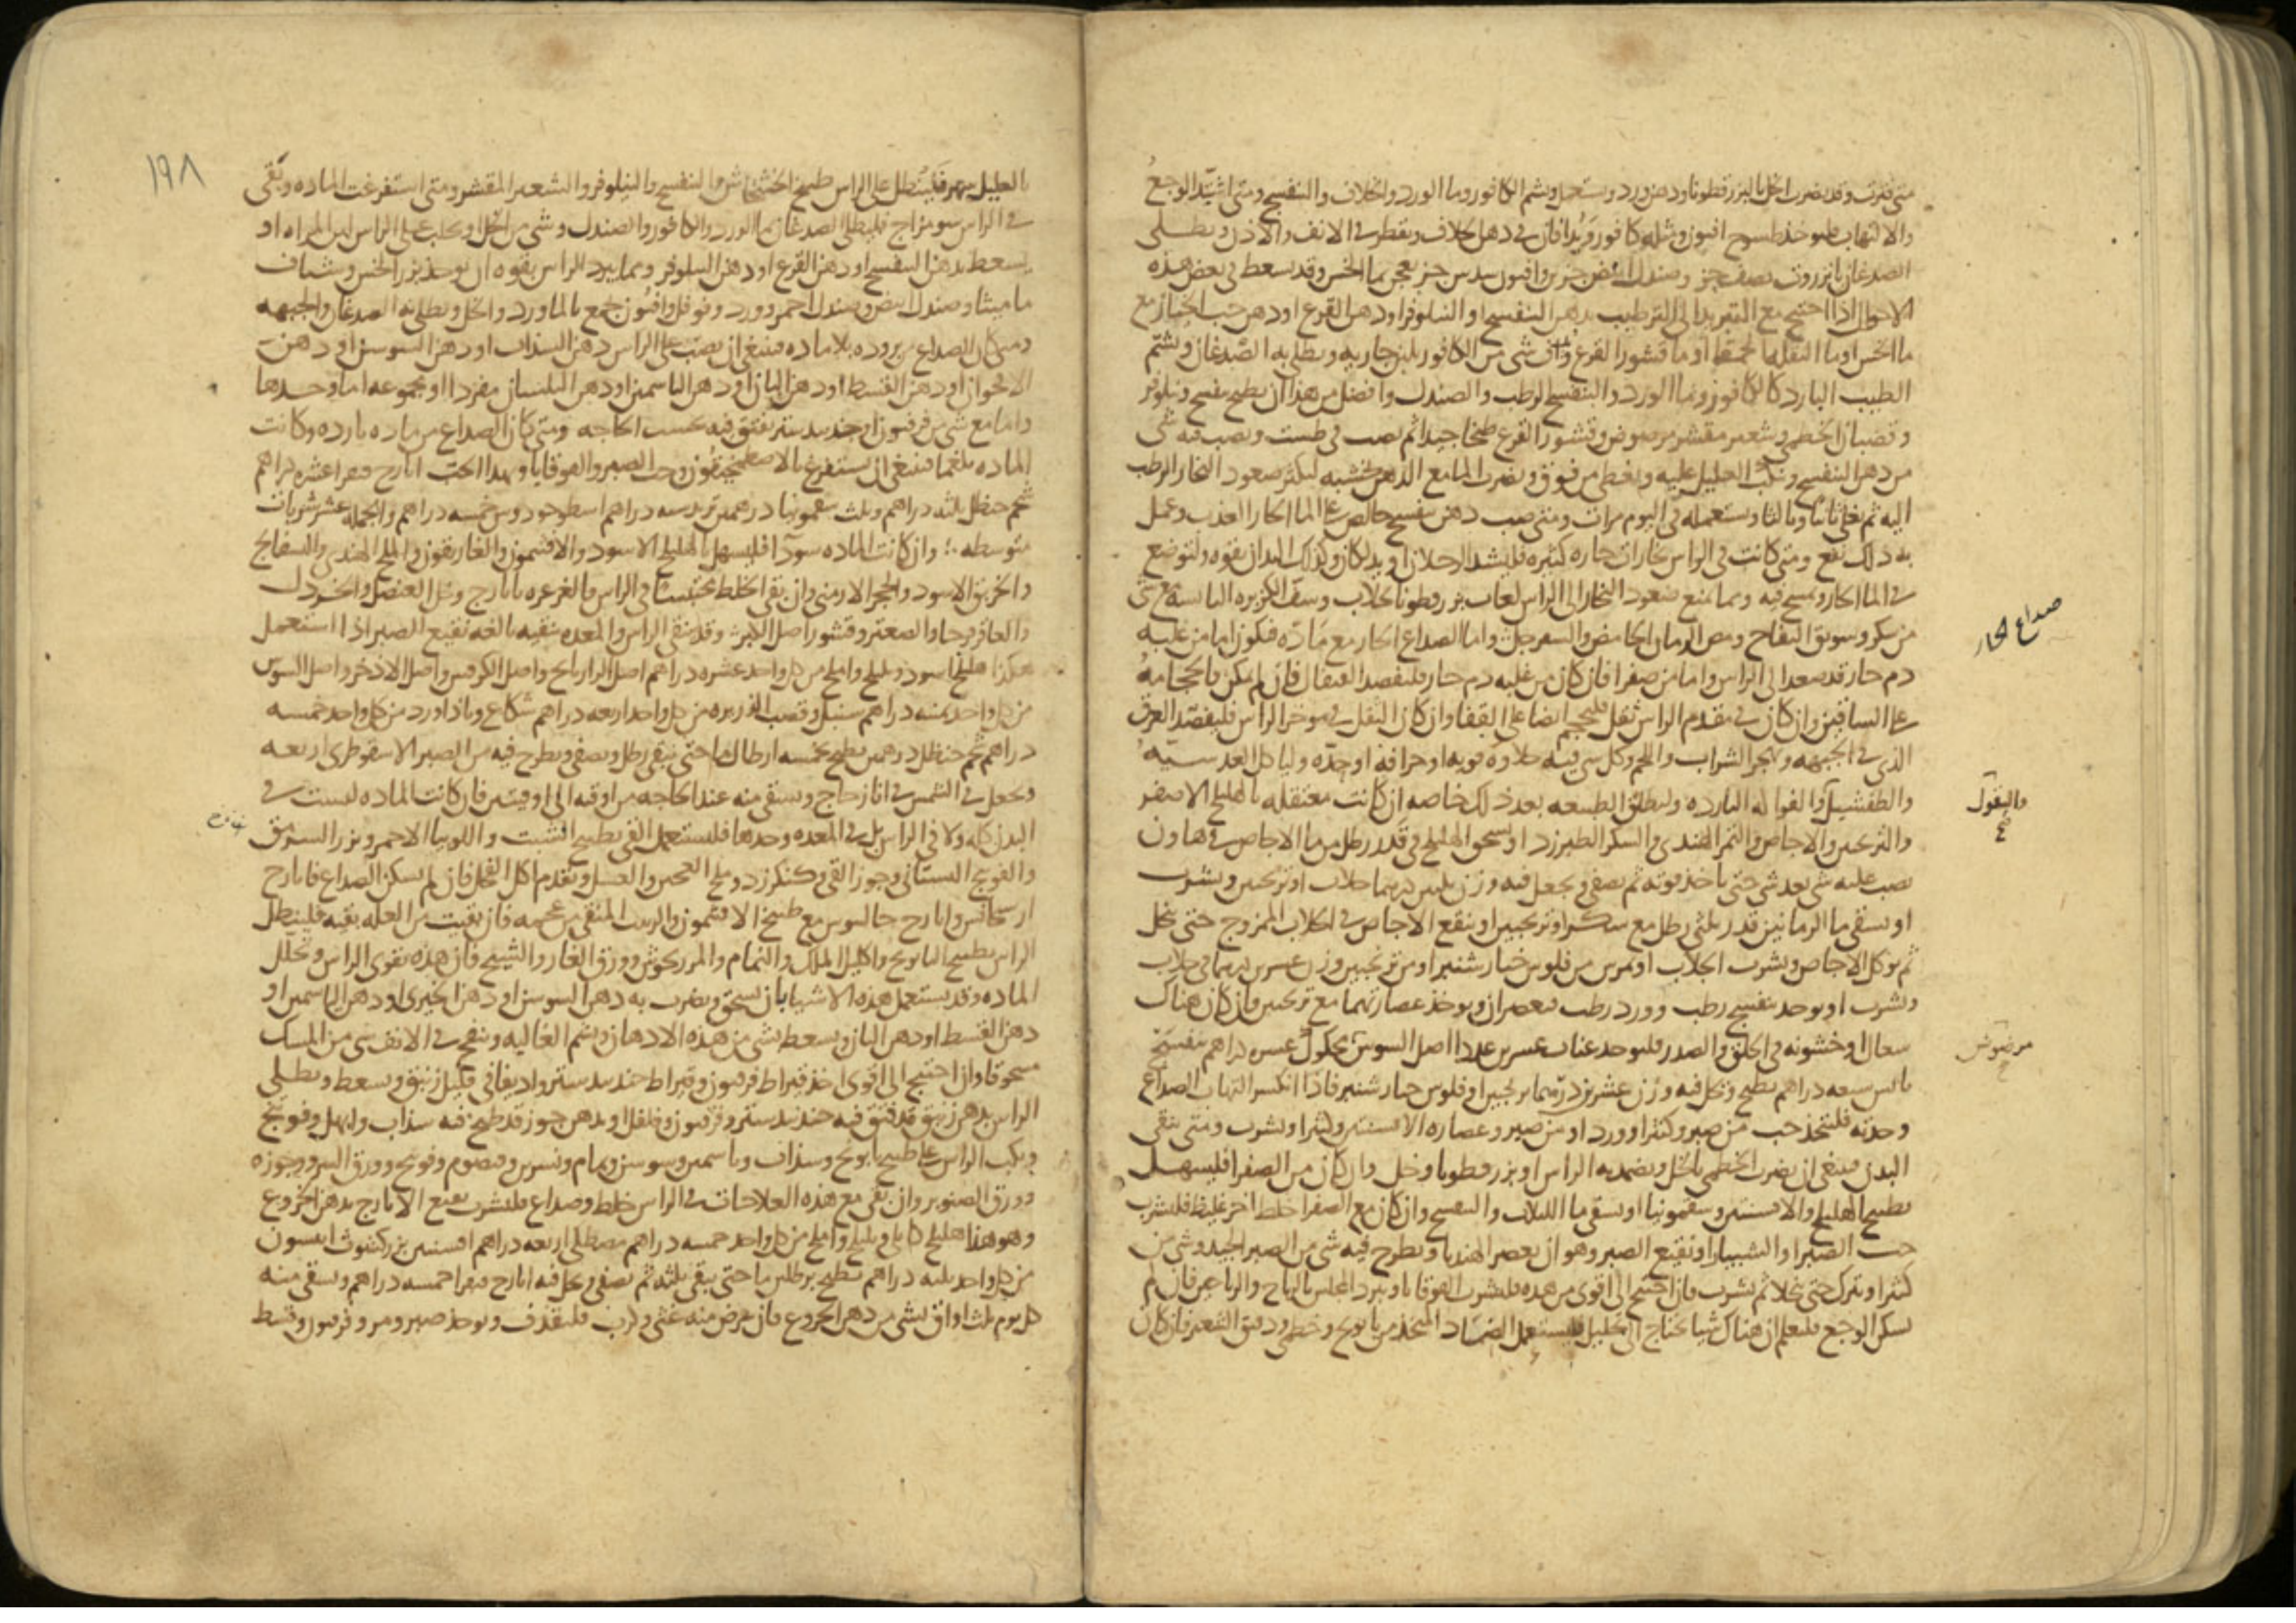 متى فترت وقد يضرب الخل بالبزرقطونا ودهن ورد ويستعمل ويشم الكافور وما الورد والخلاف والبنفسج ومتى اشتد الوجع
والالتهاب فليوخذ طسوج افيون ومثله كافور ويدافان في دهن خلاف ويقطر في الانف والاذن ويطلى
الصدغان بانزروت نصف جزو وصندل ابيض جزين وافيون سدس جز يعجن بما الخس وقد يسعط في بعض هذه
الاحوال اذا احتيج مع التبريد الى الترطيب بدهن البنفسج او النيلوفر او دهن القرع او دهن حب الخيار مع
ما الخس او ما البقلة الحمقا او ما قشور القرع شى من الكافور بلبن جاريه ويطلى به الصدغان ويشتم
الطيب البارد كالكافور وما الورد والبنفسج الرطب والصندل وافضل من هذا ان يطبخ بنفسج ونيلوفر
وقضبان الخطمي وشعير مقشر مرضوض وقشور القرع طبخا جيدا ثم يصب في طست ويصب فيه شى
من دهن البنفسج ويكب العليل عليه ويغطى من فوق ويضرب الما مع الدهن بخشبه ليكثر صعود البخار الرطب
اليه ثم يغلى ثانيا وثالثا ويستعمله في اليوم مرات ومتى صب دهن بنفسج خالص على الما الحار العذب وعمل
به ذلك نفع ومتى كانت في الراس بخارات حاره كثيره فليشد الرجلان او يدلكان وكذلك اليدان بقوه ولتوضع
في الما الحار وتمسح فيه ومما يمنع صعود البخار الى الراس لعاب بزرقطونا بجلاب وسف الكزبره اليابسه مع شى
من سكر وسويق التفاح ومص الرمان الحامض والسفرجل واما الصداع الحار مع مادّه فيكون اما من غلبه
دم حار قد صعد الى الراس واما من صفرا فان كان من غلبه دم حار فليفصد القيفال فان لم يكن فالحجامه
على الساقين وان كان في مقدم الراس ثقل فليحجم ايضا على القفا وان كان الثقل في موخر الراس فليفصد العرق
الذى في الجبهه ويهجر الشراب واللحم وكل شى فيه حلاوه قويه او حرافه او حدّه ولياكل العدسيه
والطفشيل والفواكه البارده وليطلق الطبيعه بعد ذلك خاصه ان كانت معتقله بالهليلج الاصفر
والترنجبين والاجاص والتمر الهندى والسكر الطبرزد او يسحق الهليلج في قدر رطل من ما الاجاص في هاون
يصب عليه شى بعد شى حتى ياخذ قوته ثم يصفى ويجعل فيه وزن ثلثين درهما جلاب او ترنجبين ويشرب
او يسقى ما الرمانين قدر ثلثى رطل مع سكر او ترنجبين او ينقع الاجاص في الجلاب الممزوج حتى ينحل
ثم يوكل الاجاص ويشرب الجلاب او يمرس من فلوس خيار شنبر او من ترنجبين وزن عشرين درهما في جلاب
ويشرب او يوخذ بنفسج رطب وورد رطب فيعصران ويوخذ عصارتهما مع ترنجبين وان كان هناك
سعال او خشونه في الحلق والصدر فليوخذ عناب عشرين عددا اصل السوس محكوك عشره دراهم بنفسج
يابس سبعه دراهم يطبخ ويحل فيه وزن عشرين درهما ترنجبين او فلوس خيار شنبر فاذا انكسر التهاب الصداع
وحدته فليتخذ حب من صبر وكثيرا وورد او من صبر وعصاره الافسنتين وكثيرا ويشرب ومتى ينقى
البدن فينبغى ان يضرب الخطمي بالخل ويضمد به الراس او بزرقطونا وخل وان كان من الصفرا فليسهل
بطبيخ الهليلج والافسنتين وسقمونيا او يسقى ما اللبلاب والبنفسج وان كان مع الصفرا خلط اخر غليظ فليشرب
حب الصبر او الشبيار او نقيع الصبر وهو ان يعصر الهندبا ويطرح فيه شى من الصبر الجيد وشى من
كثيرا ويترك حتى ينحلا ثم يشرب فان احتيج الى اقوى من هذه فليشرب القوقايا ويبرد المجلس بالرياح والرياحين فان لم
يسكن الوجع فليعلم ان هناك شيا يحتاج الى تحليل فليستعمل الضماد المتخذ من بابونج وخطمي ودقيق الشعير فان كان
صداع الحار
والبقول
صح
مرضوض
١٩٨
بالعليل سهر فلينطل على الراس طبيخ الخشخاش والبنفسج والنيلوفر والشعير المقشر ومتى استفرغت الماده وبقى
في الراس سو مزاج فليطلى الصدغان بما الورد والكافور والصندل وشى من الخل او يحلب على الراس لبن المراه او
يسعط بدهن البنفسج او دهن القرع او دهن النيلوفر ومما يبرد الراس بقوه ان يوخذ بزر الخس وشياف
ماميثا وصندل ابيض وصندل احمر وورد وفوفل وافيون يجمع بالماورد والخل ويطلى به الصدغان والجبهه
ومتى كان الصداع من بروده بلا ماده فينبغى ان يصب على الراس دهن السذاب او دهن السوسن او دهن
الاقحوان او دهن القسط او دهن البان او دهن الياسمين او دهن البلسان مفردا او مجموعه اما وحدها
واما مع شى من فرفيون او جندبيدستر يفتق فيه بحسب الحاجه ومتى كان الصداع من ماده بارده وكانت
الماده بلغما فينبغى ان يستفرغ بالاصطمخيقون وحب الصبر والقوقايا وبهذا الحب ايارج فيقرا عشره دراهم
شحم حنظل ثلثه دراهم وثلث سقمونيا درهمين تربد سته دراهم اسطوخودوس خمسه دراهم والجمله عشر شربات
متوسطه ؛ وان كانت الماده سودا فليسهل بالهليلج الاسود والافتيمون والغاريقون والملح الهندى والبسفايج
والخربق الاسود والحجر الارمنى وان بقى الخلط محتبسا في الراس فالغرغره بايارج وخل العنصل والخردل
والعاقرقرحا والصعتر وقشور اصل الكبر وقد ينقى الراس والمعده تنقيه بالغه نقيع الصبر اذا استعمل
هكذا هليلج اسود وبليلج واملج من كل واحد عشره دراهم اصل الرازيانج واصل الكرفس واصل الاذخر واصل السوس
من كل واحد ثمنيه دراهم سنبل وقصب الذريره من كل واحد اربعه دراهم شكاع وباذاورد من كل واحد خمسه
دراهم شحم حنظل درهمين يطبخ بخمسه ارطال ما حتى يبقى رطل ويصفى ويطرح فيه من الصبر الاسقوطرى اربعه
ويجعل في الشمس في انا زجاج ويسقى منه عند الحاجه من اوقيه الى اوقيتين فان كانت الماده ليست في
البدن كله ولا في الراس بل في المعده وحدها فليستعمل القى بطبيخ الشبت واللوبيا الاحمر وبزر السرمق
والفوتنج البستانى وجوز القى وكنكرزد وملح العجين والعسل وتقدم اكل الفجل فان لم يسكن الصداع فايارج
اركاغانيس وايارج جالينوس مع طبيخ الافتيمون والزبيب المنقى من عجمه فان بقيت من العله بقيه فلينطل
الراس بطبيخ البابونج واكليل الملك والنمام والمرزنجوش وورق الغار والشيح فان هذه تقوى الراس وتحلل
الماده وقد يستعمل هذه الاشيا بان تسحق ويضرب به دهن السوسن او دهن الخيرى او دهن الياسمين او
دهن القسط او دهن البان ويسعط بشى من هذه الادهان ويشم الغاليه وينفخ في الانف شى من المسك
مسحوقا وان احتيج الى اقوى اخذ قيراط فرفيون وقيراط جندبيدستر واديفا في قليل زنبق ويسعط ويطلى
الراس بدهن زنبق قد فتق فيه جندبيدستر وفرفيون وفلفل او بدهن جوز قد طبخ فيه سذاب وابهل وفوتنج
ويكب الراس على طبيخ بابونج وسذاب وياسمين وسوسن ونمام ونسرين وقيصوم وفوتنج وورق السرو وجوزه
وورق الصنوبر وان بقى مع هذه العلاجات في الراس خلط وصداع فليشرب نقيع الايارج بدهن الخروع
وهو هذا هليلج كابلى وبليلج واملج من كل واحد خمسه دراهم مصطكى اربعه دراهم افسنتين بزر كشوث انيسون
من كل واحد ثلثه دراهم تطبخ برطلين ما حتى يبقى ثلثه ثم يصفى ويحل فيه ايارج فيقرا خمسه دراهم ويسقى منه
كل يوم ثلث اواق بشى من دهن الخروع فان عرض منه غثى وكرب فليقذف ويوخذ صبر ومر وفرفيون وقسط